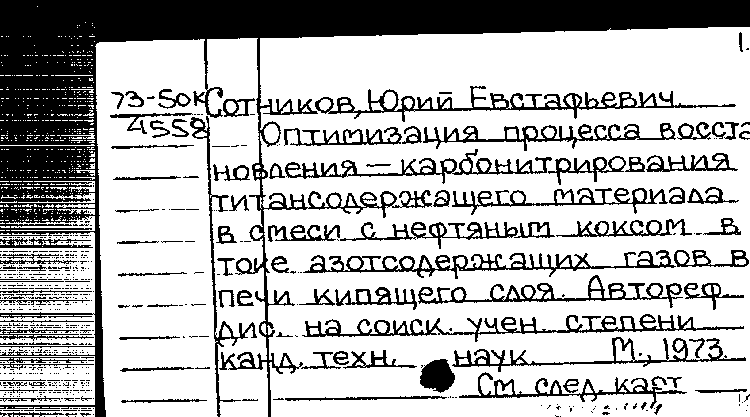 1.
73-50к Сотников, Юрий Евстафьевич.
4558 Оптимизация процесса восста
новления — карбонитрирования
титансодержащего материала
в смеси с нефтяным коксом в
токе азотсодержащих газов в
печи кипящего слоя. Автореф.
дис. на соиск. учен. степени
канд. техн. наук. М., 1973.
См. след. карт